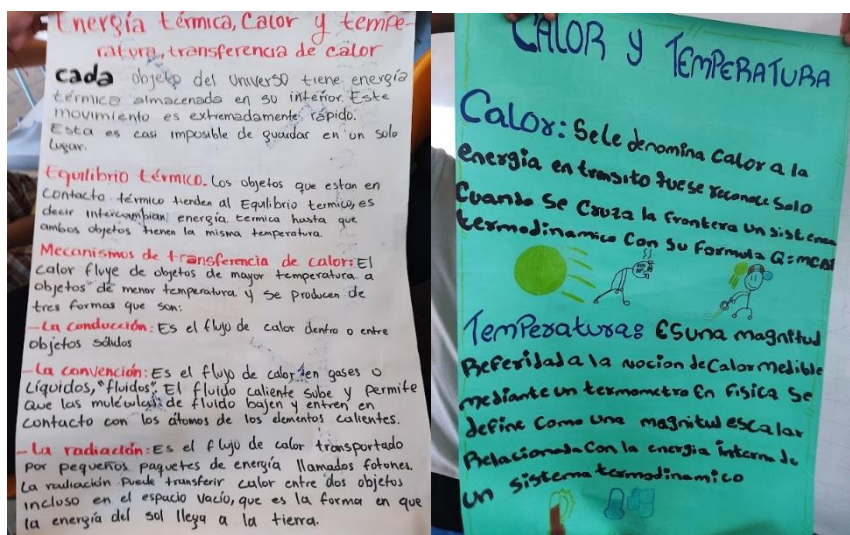 Energía térmica, Calor y tempe-
ratura, transferencia de calor
cada objeto del universo tiene energía
térmica almacenada en su interior. Este
movimiento es extremadamente rápido.
Esta es casi imposible de guardar en un solo
lugar.
Equilibrio térmico. Los objetos que estan en
contacto térmico tienden al Equilibrio termico, es
decir intercambian energía termica hasta que
ambos objetos tienen la misma temperatura.
Mecanismos de transferencia de calor: El
calor fluye de objetos de mayor temperatura a
objetos de menor temperatura y se producen de
tres formas que son:
-La conducción: Es el flujo de calor dentro o entre
objetos sólidos
-La convención: Es el flujo de calor en gases o
Líquidos, "fluidos". El fluido caliente sube y permite
que las muléculas de fluido bajen y entren en
contacto con los átomos de los elementos calientes.
-La radiación: Es el flujo de calor transportado
por pequeños paquetes de energía llamados fotones.
La radiación puede transferir calor entre dos objetos
incluso en el espacio vacío, que es la forma en que
la energía del sol llega a la tierra.
CALOR y TEMPERATURA
Calor: Se le denomina Calor a la
energia en transito que se reconoce solo
Cuando Se Cruza la frontera un sistema
termodinamico Con Su formula Q=mc∆t
Temperatura: ES una magnitud
Referidad a la nocion de Calor medible
mediante un termometro En Fisica Se
define Como una magnitud escalar
Relacionada Con la energia interna de
un sistema termodinamico